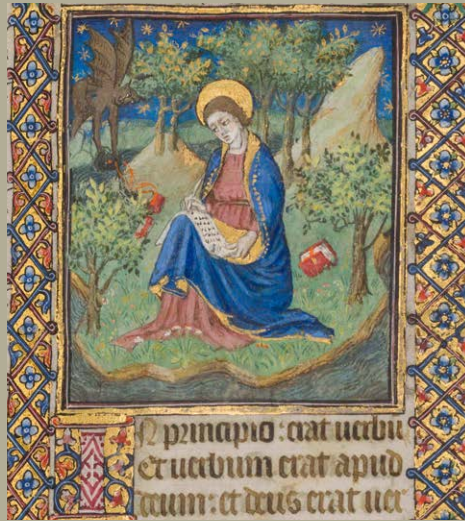 IN principio: erat uerbu
Et uerbum erat apud
deum: et deus erat uer